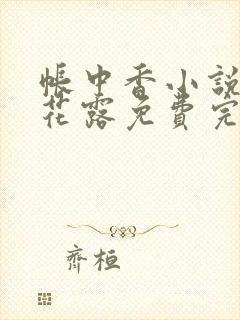 帳中香小說
花露免費完
齊桓